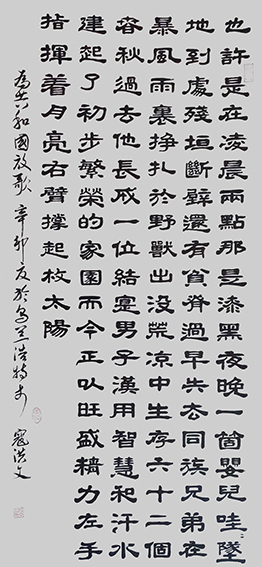 也許是在凌晨兩點那是漆黑夜晚一箇嬰兒哇墜
地到處殘垣斷壁還有貧脊過早失去同族兄弟在
暴風雨裏掙扎於野獸出没荒凉中生存六十二個
春秋過去他長成一位結實男子漢用智慧和汗水
建起了初步繁榮的家園而今正以旺盛精力左手
指揮着月亮右臂撐起枚太陽
為共和國放歌 辛卯夏於烏兰浩特市 寇洪文